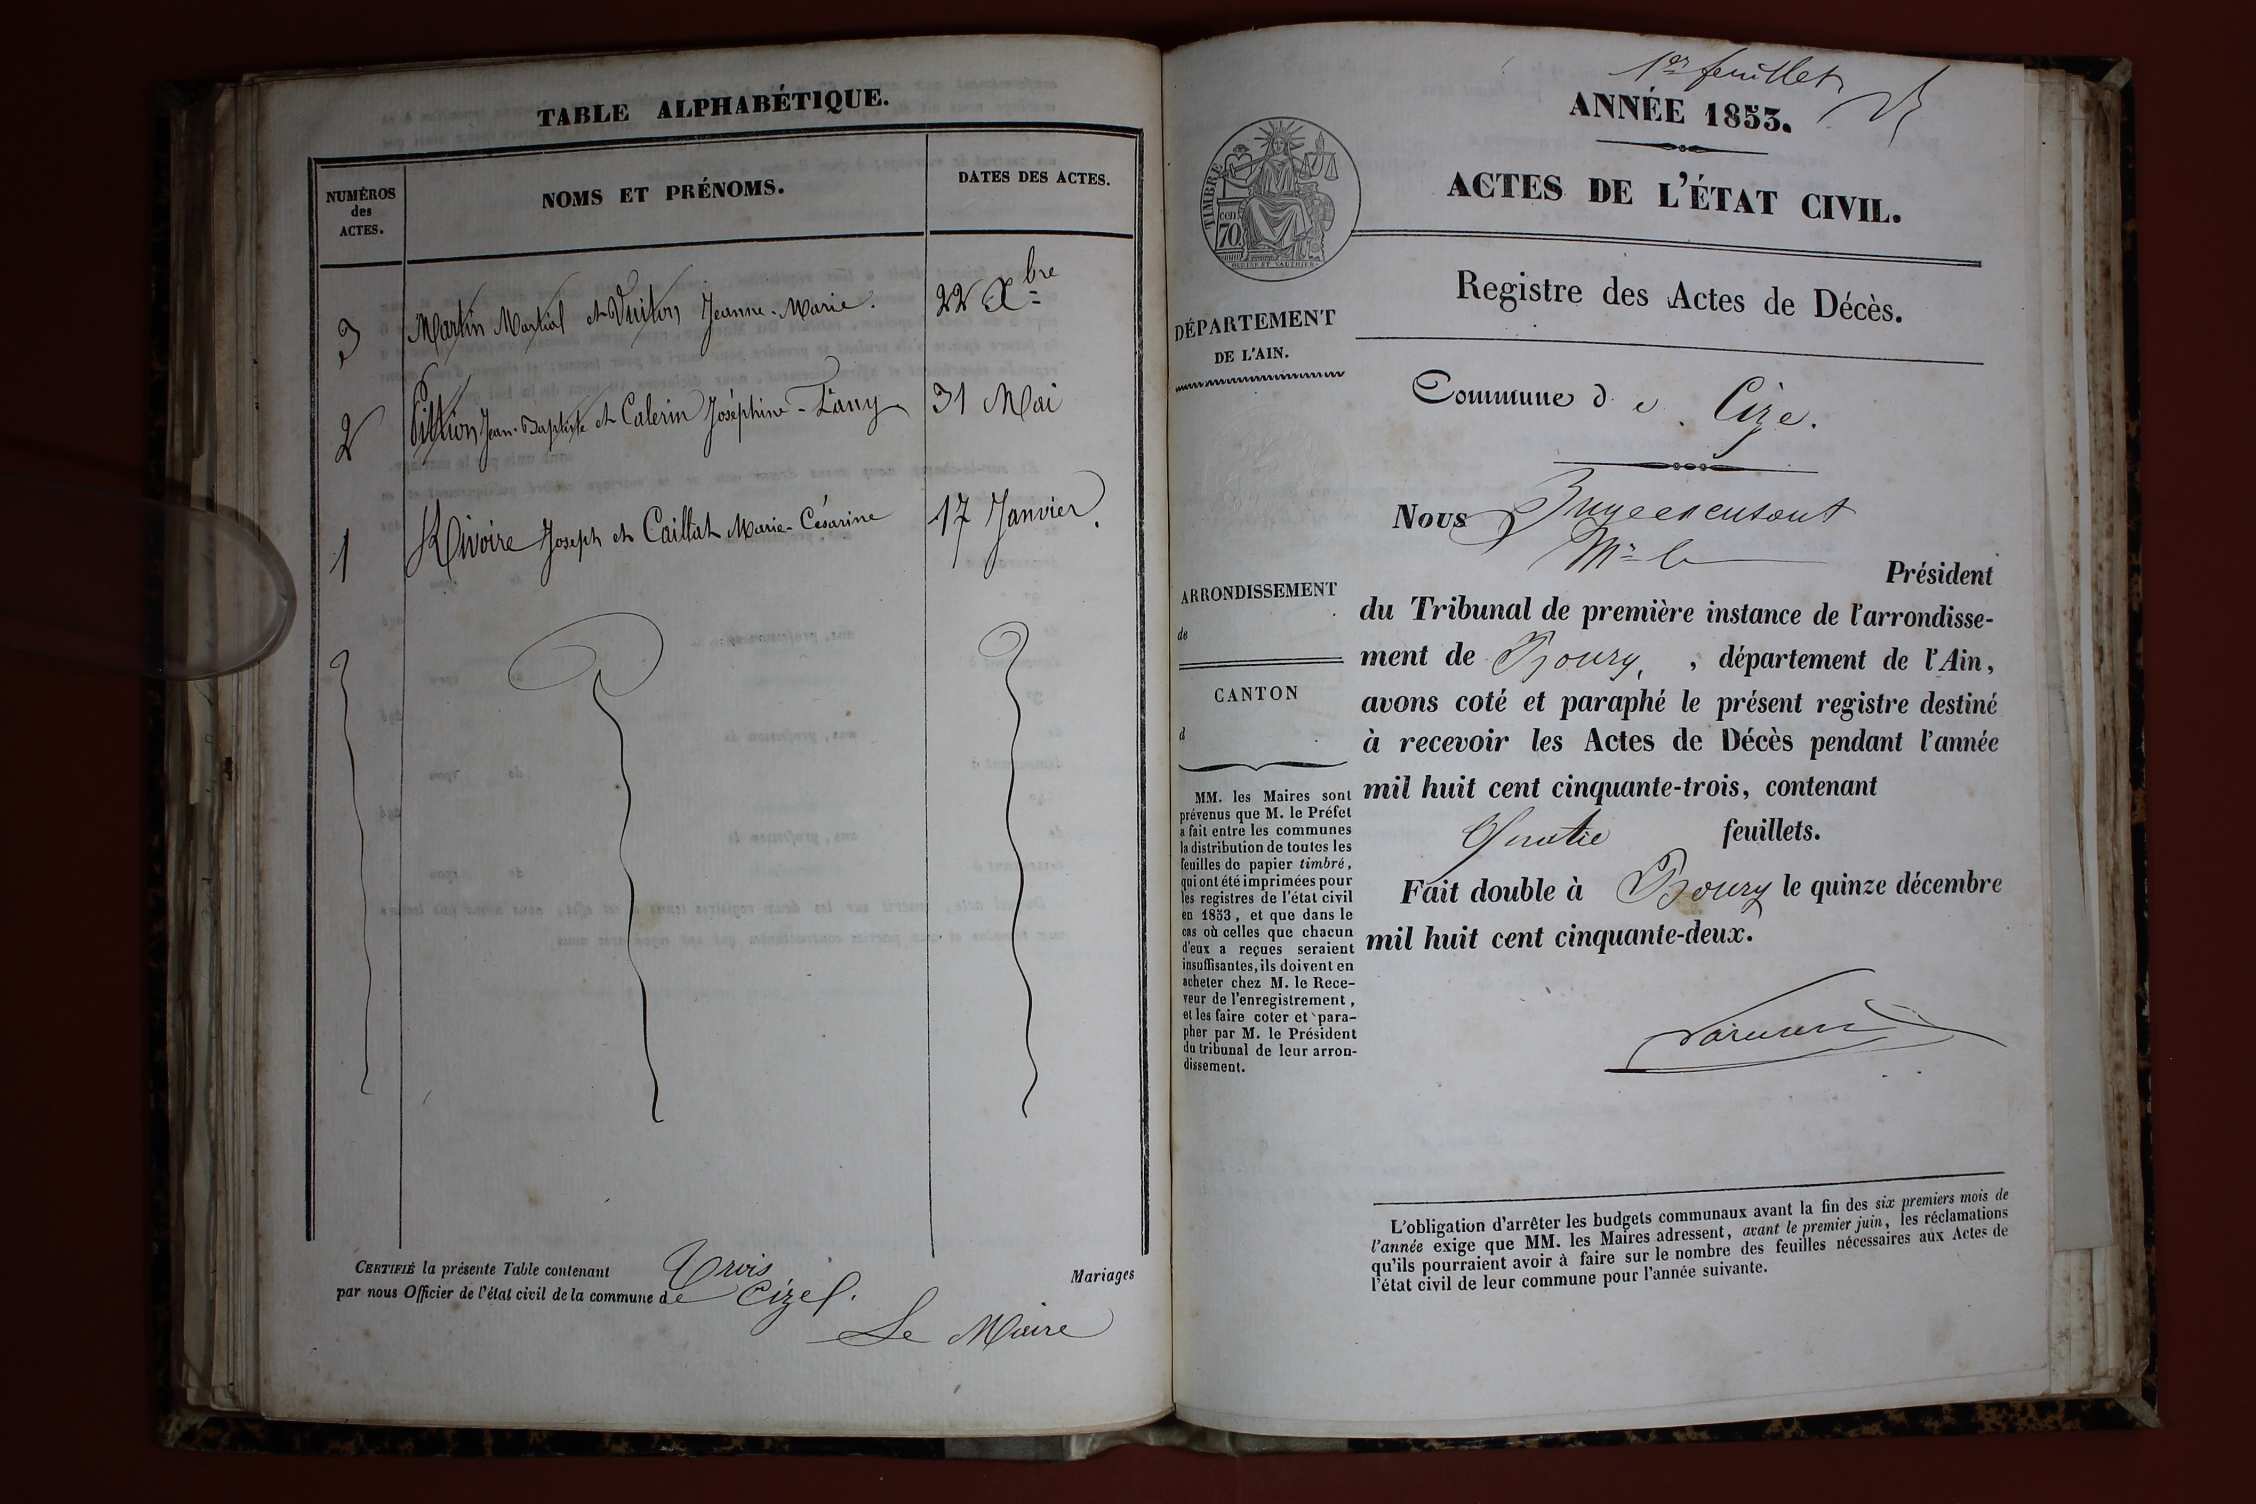 TABLE ALPHABÉTIQUE.
NUMÉROS
des
ACTES.
NOMS ET PRÉNOMS.
DATES DES ACTES.
3 Martin Martial et Vuiton Jeanne-Marie. 22 Xbre
2 Pittion Jean-Baptiste et Calerin Joséphine-Fany 31 Mai
1 Rivoire Joseph et Caillat Marie-Césarine 17 Janvier.
CERTIFIÉ la présente Table contenant Trois Mariages
par nous Officier de l'état civil de la commune de Cize
Le Maire
1er feuillet
ANNÉE 1853.
ACTES DE L'ÉTAT CIVIL.
TIMBRE
cen
70
Registre des Actes de Décès.
DÉPARTEMENT
DE L'AIN.
Commune de Cize.
ARRONDISSEMENT
de
CANTON
d
MM. les Maires sont
prévenus que M. le Préfet
a fait entre les communes
la distribution de toutes les
feuilles de papier timbré,
qui ont été imprimées pour
les registres de l'état civil
en 1853, et que dans le
cas où celles que chacun
d'eux a reçues seraient
insuffisantes, ils doivent en
acheter chez M. le Rece-
veur de l'enregistrement,
et les faire coter et para-
pher par M. le Président
du tribunal de leur arron-
dissement.
Nous Juge
Mr le Président
du Tribunal de première instance de l'arrondisse-
ment de Bourg, , département de l'Ain,
avons coté et paraphé le présent registre destiné
à recevoir les Actes de Décès pendant l'année
mil huit cent cinquante-trois, contenant
Quatre feuillets.
Fait double à Bourg le quinze décembre
mil huit cent cinquante-deux.
L'obligation d'arrêter les budgets communaux avant la fin des six premiers mois de
l'année exige que MM. les Maires adressent, avant le premier juin, les réclamations
qu'ils pourraient avoir à faire sur le nombre des feuilles nécessaires aux Actes de
l'état civil de leur commune pour l'année suivante.